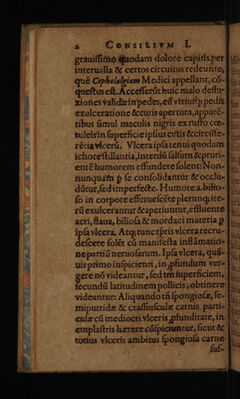 2 CONSILIVM I.
grauissimo quodam dolore capitis per
interualla & certos circuitus redeunte,
quē Cephalalgiam Medici appellant, cō-
questus est. Accesserūt huic malo deflu-
xiones validæ in pedes, cū vtriusq; pedis
exulceratione & cutis apertura, apparē-
tibus simul maculis nigris ex ruffo cœ-
ruleis in superficie ipsius cutis & circūfe-
rētia vlcerū. Vlcera ipsa tenui quodam
ichore stillantia, interdū salsum & pruri-
entē humorem effundere solent: Non-
nunquam se consolidantur & occlu-
dūtur, sed imperfecte. Humore a. bilio-
so in corpore efferuescēte plerunq; ite-
rū exulcerantur & aperiuntur, effluente
acri, flaua, biliosa & mordaci materia
ipsa vlcera. Atq; tunc vlcera recru-
descere solēt cū manifesta inflāmatio-
ne partiū neruosarum. Ipsa vlcera, quā-
uis primo inspicienti, in profundum ver-
gere nō videantur, sed superficiem,
secundū latitudinem pollicis, obtinere
videantur: Aliquando tn̄ spongiosæ, se-
miputridæ & crassiusculæ carnis parti-
culæ cū mediocri vlceris profunditate, in
emplastris hærere cōspiciuntur, sicut &
totius vlceris ambitus spongiosa carne